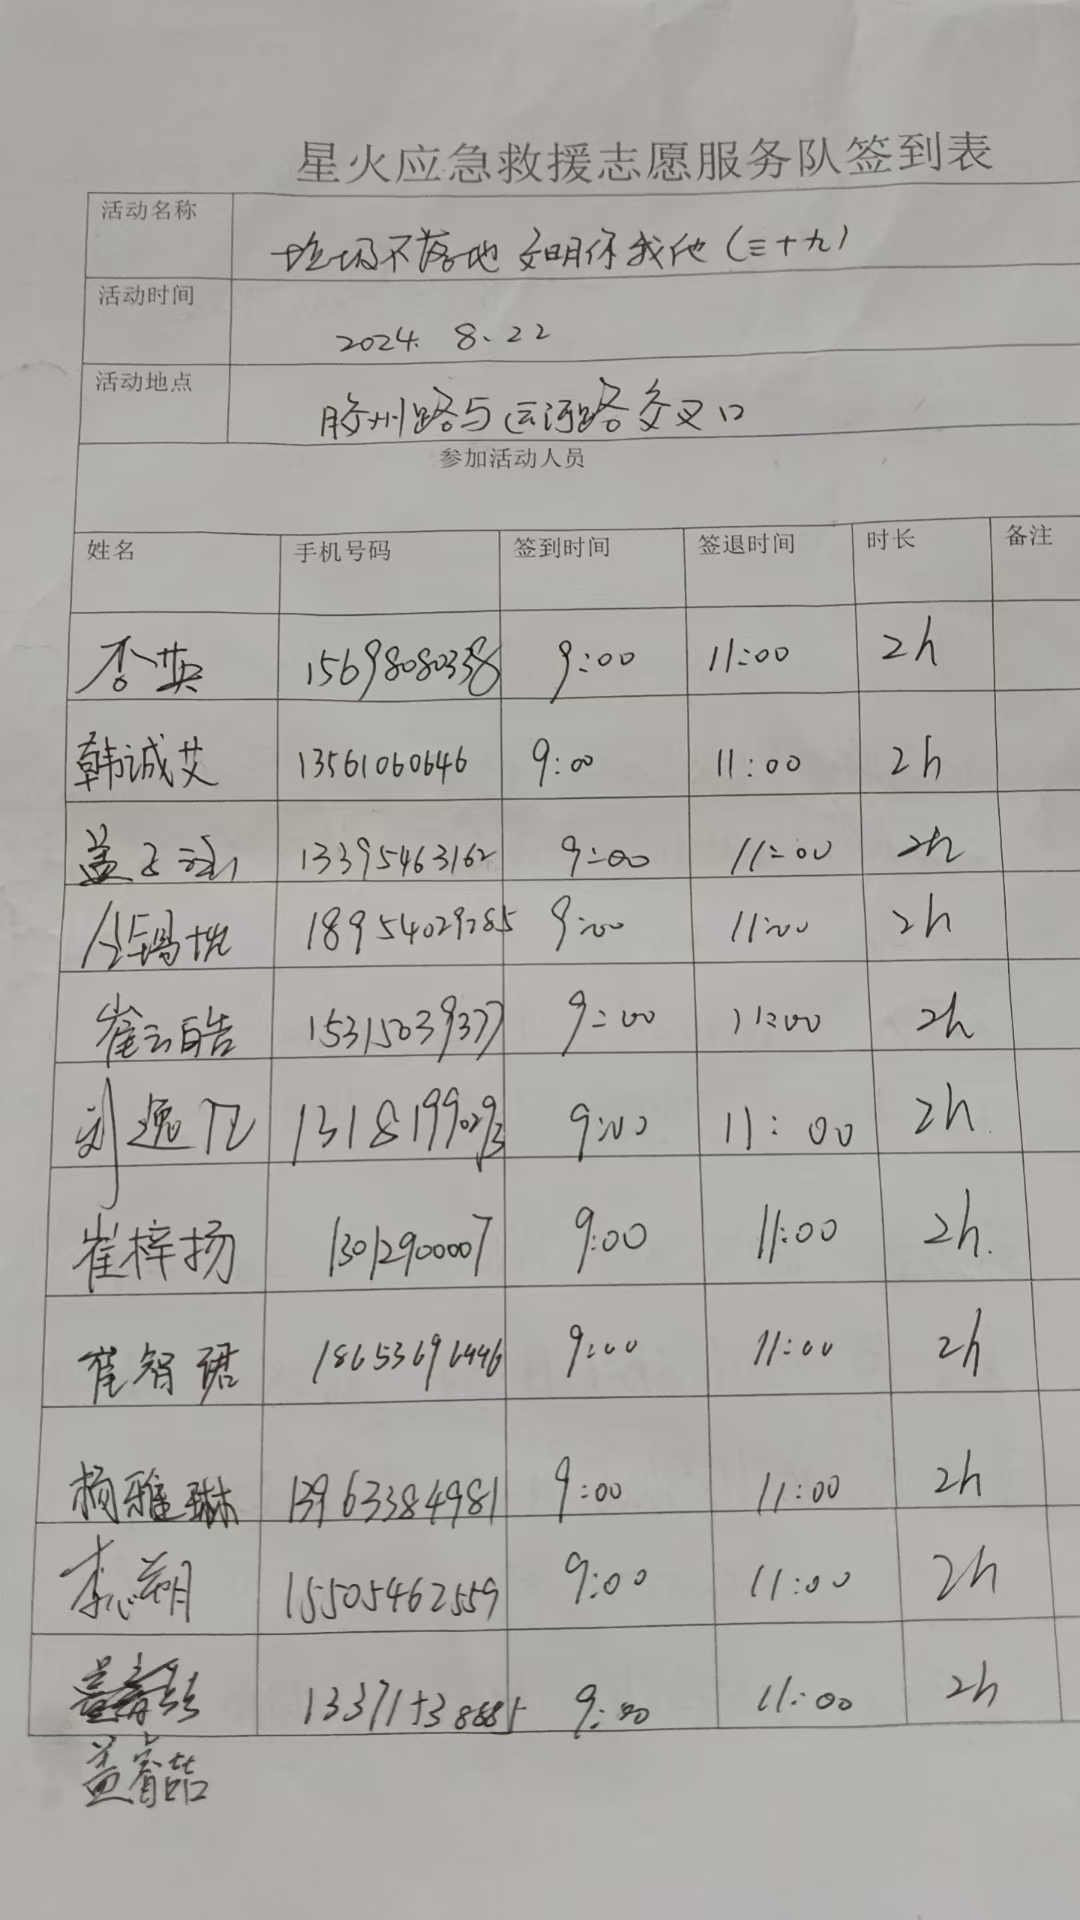 星火应急救援志愿服务队签到表
活动名称 垃圾不落地 文明你我他（三十九）
活动时间 2024. 8. 22
活动地点 胶州路与运河路交叉口
参加活动人员
姓名 手机号码 签到时间 签退时间 时长 备注
李英 15698080338 9:00 11:00 2h
韩诚艾 13561060646 9:00 11:00 2h
盖 13395463162 9:00 11:00 2h
18954029785 9:00 11:00 2h
崔云皓 15315039377 9:00 11:00 2h
刘逸 13181990293 9:00 11:00 2h.
崔梓扬 13012900007 9:00 11:00 2h.
崔智珺 18653696446 9:00 11:00 2h
杨雅琳 13963384981 9:00 11:00 2h
李心朔 15505462559 9:00 11:00 2h
9:00 11:00 2h
盖睿喆